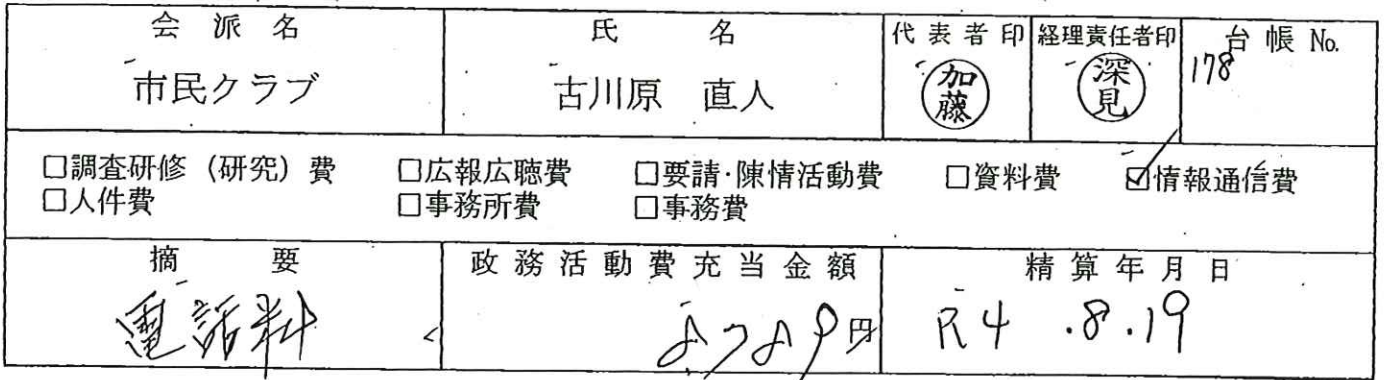 会派名 氏名 代表者印 経理責任者印 台帳 No.
市民クラブ 古川原 直人 加藤 深見 178
□調査研修（研究）費 □広報広聴費 □要請・陳情活動費 □資料費 ☑情報通信費
□人件費 □事務所費 □事務費
摘要 政務活動費充当金額 精算年月日
電話料 円 R4.8.19